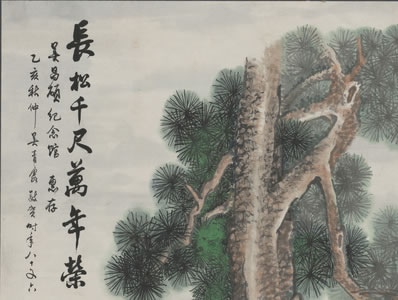 長松千尺萬年榮
吳昌碩紀念館 惠存
乙亥秋仲 吳青霞 敬賀 時年八十又六